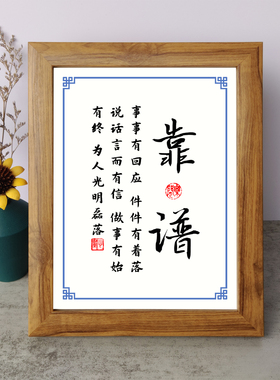 靠谱
事事有回应 件件有着落
说话言而有信 做事有始
有终 为人光明磊落